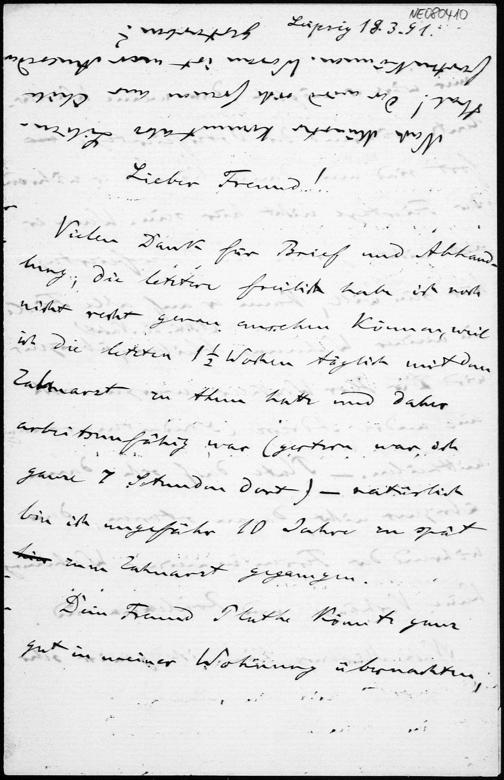 NE080410
Leipzig 18.3.91.
Nach Münster kommt also Lilien-
thal! Der wird sich freuen aus Chile
fortzukommen. Woran ist nur
gestorben?
Lieber Freund!
Vielen Dank für Brief und Abhand-
lung; die letztere freilich habe ich noch
nicht recht genau ansehen können, weil
ich die letzten 1½ Wochen täglich mit dem
Zahnarzt zu thun hatte und daher
arbeitsunfähig war (gestern war ich
ganze 7 Stunden dort) — natürlich
bin ich ungefähr 10 Jahre zu spät
zum Zahnarzt gegangen.
Dein Freund Plathe könnte ganz
gut in meiner Wohnung übernachten,